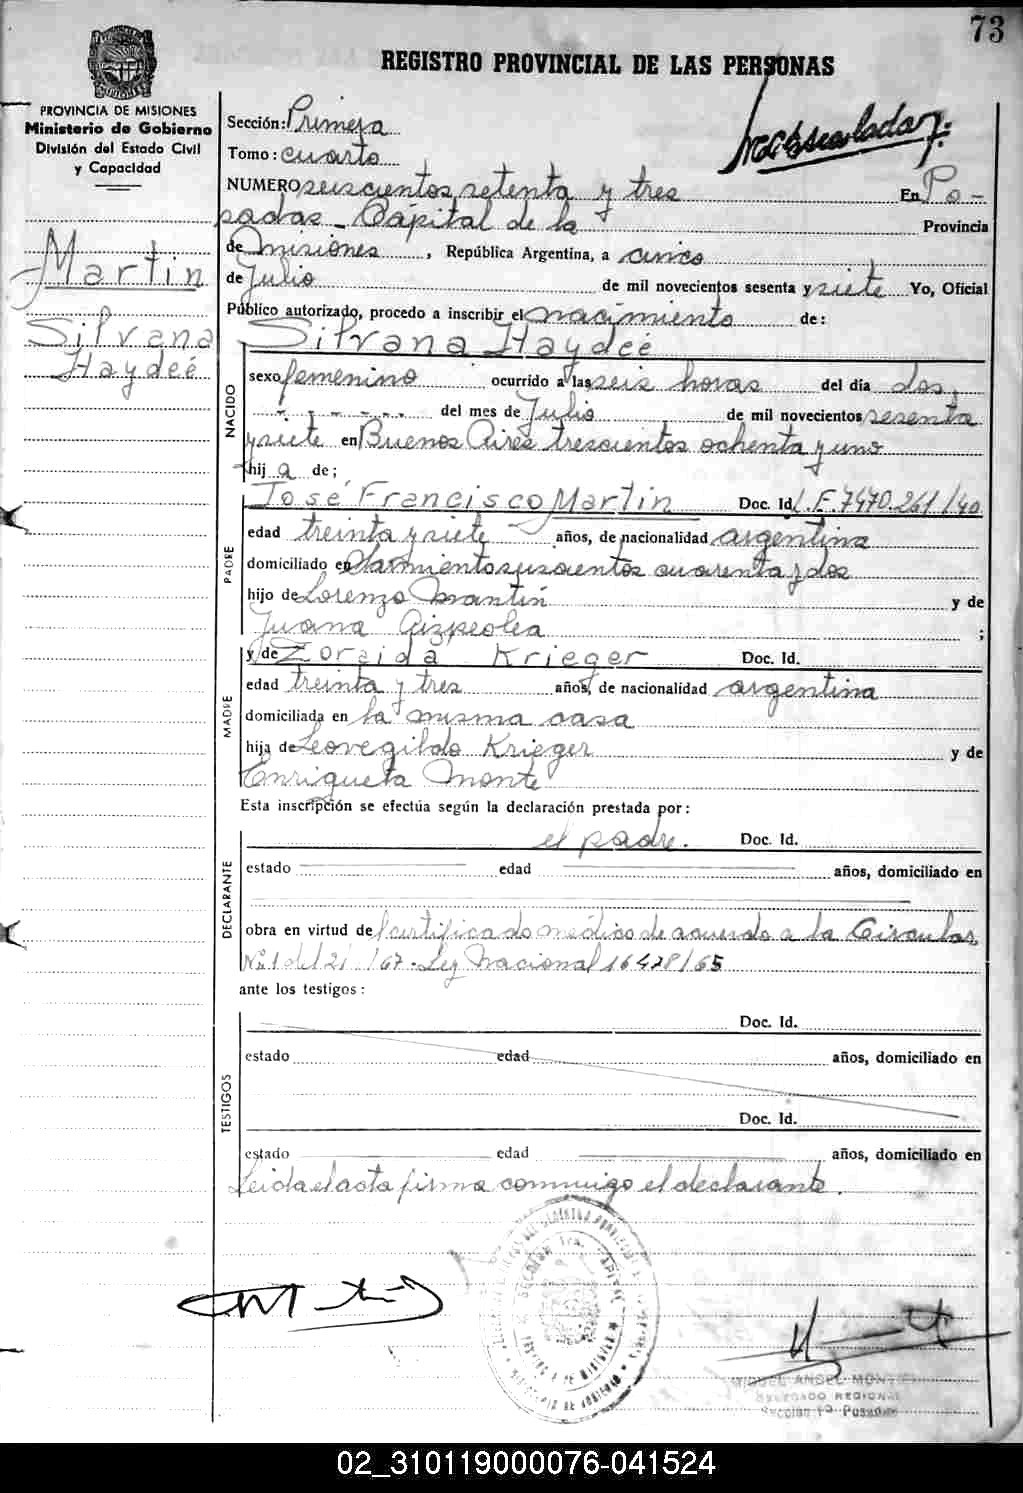 73
REGISTRO PROVINCIAL DE LAS PERSONAS
PROVINCIA DE MISIONES
Ministerio de Gobierno
División del Estado Civil
y Capacidad
Martin
Silvana
Haydeé
Sección: Primera
Tomo: cuarto
NUMERO seiscientos setenta y tres En Po-
sadas - Cápital de la Provincia
de Misiones, República Argentina, a cinco
de Julio de mil novecientos sesenta y siete Yo, Oficial
Público autorizado, procedo a inscribir el nacimiento de:
Silvana Haydeé
NACIDO
sexo femenino ocurrido a las seis horas del día dos
del mes de Julio de mil novecientos sesenta
y siete en Buenos Aires trescientos ochenta y uno
hija de;
PADRE
José Francisco Martin Doc. Id. L.E. 7470.261/40
edad treinta y siete años, de nacionalidad argentina
domiciliado en Sarmiento seiscientos cuarenta y dos
hijo de Lorenzo Martin y de
Juana Aizpeolea ;
MADRE
y de Zoraida Krieger Doc. Id.
edad treinta y tres años, de nacionalidad argentina
domiciliada en la misma casa
hija de Leovegildo Krieger y de
Enriqueta Monte
Esta inscripción se efectúa según la declaración prestada por:
DECLARANTE
el padre. Doc. Id.
estado edad años, domiciliado en
obra en virtud de certificado médico de acuerdo a la Circular
Nº 1 del 21 /67 - Ley Nacional 16478/65
ante los testigos:
TESTIGOS
Doc. Id.
estado edad años, domiciliado en
Doc. Id.
estado edad años, domiciliado en
Leida el acta firma conmigo el declarante.
MIGUEL ANGEL
DELEGADO REGIONAL
Sección 1ª Posadas
02_310119000076-041524